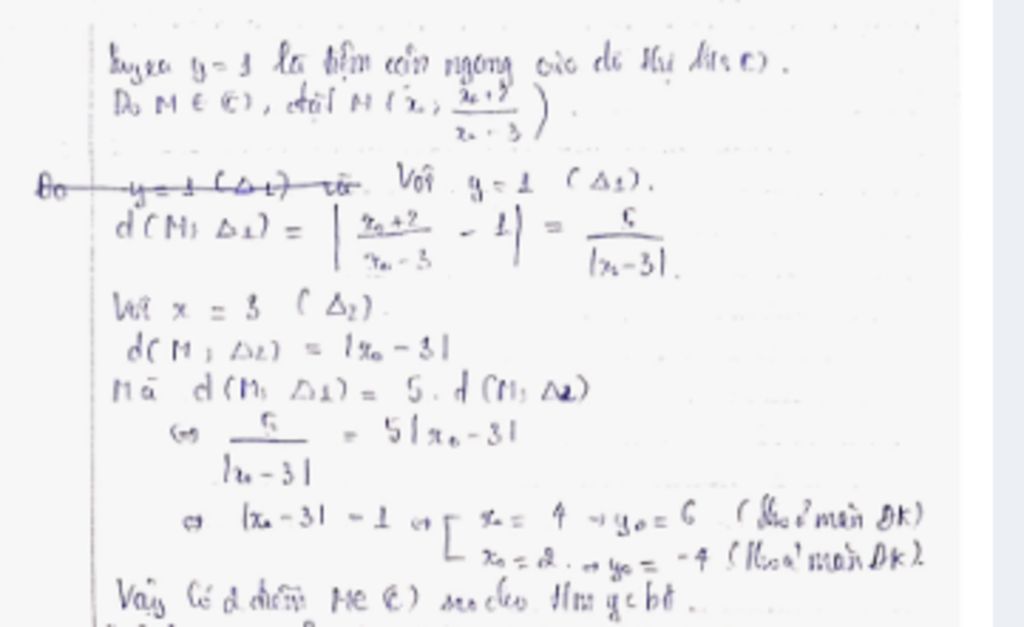 Suy ra y = 1 là tiệm cận ngang của đồ thị hàm số (C).
Do M ∈ (C), đặt M (x₀; \frac{x₀+2}{x₀-3})
Do y = 1 (Δ1) và Với y = 1 (Δ1).
d(M; Δ1) = |\frac{x₀+2}{x₀-3} - 1| = \frac{5}{|x₀-3|}.
Với x = 3 (Δ2)
d(M; Δ2) = |x₀ - 3|
Mà d(M; Δ1) = 5. d(M; Δ2)
⇔ \frac{5}{|x₀-3|} = 5|x₀-3|
⇔ |x₀-3| = 1 ⇔ [ x₀ = 4 → y₀ = 6 (thoả mãn ĐK)
x₀ = 2 → y₀ = -4 (thoả mãn ĐK)
Vậy có 2 điểm M ∈ (C) sao cho